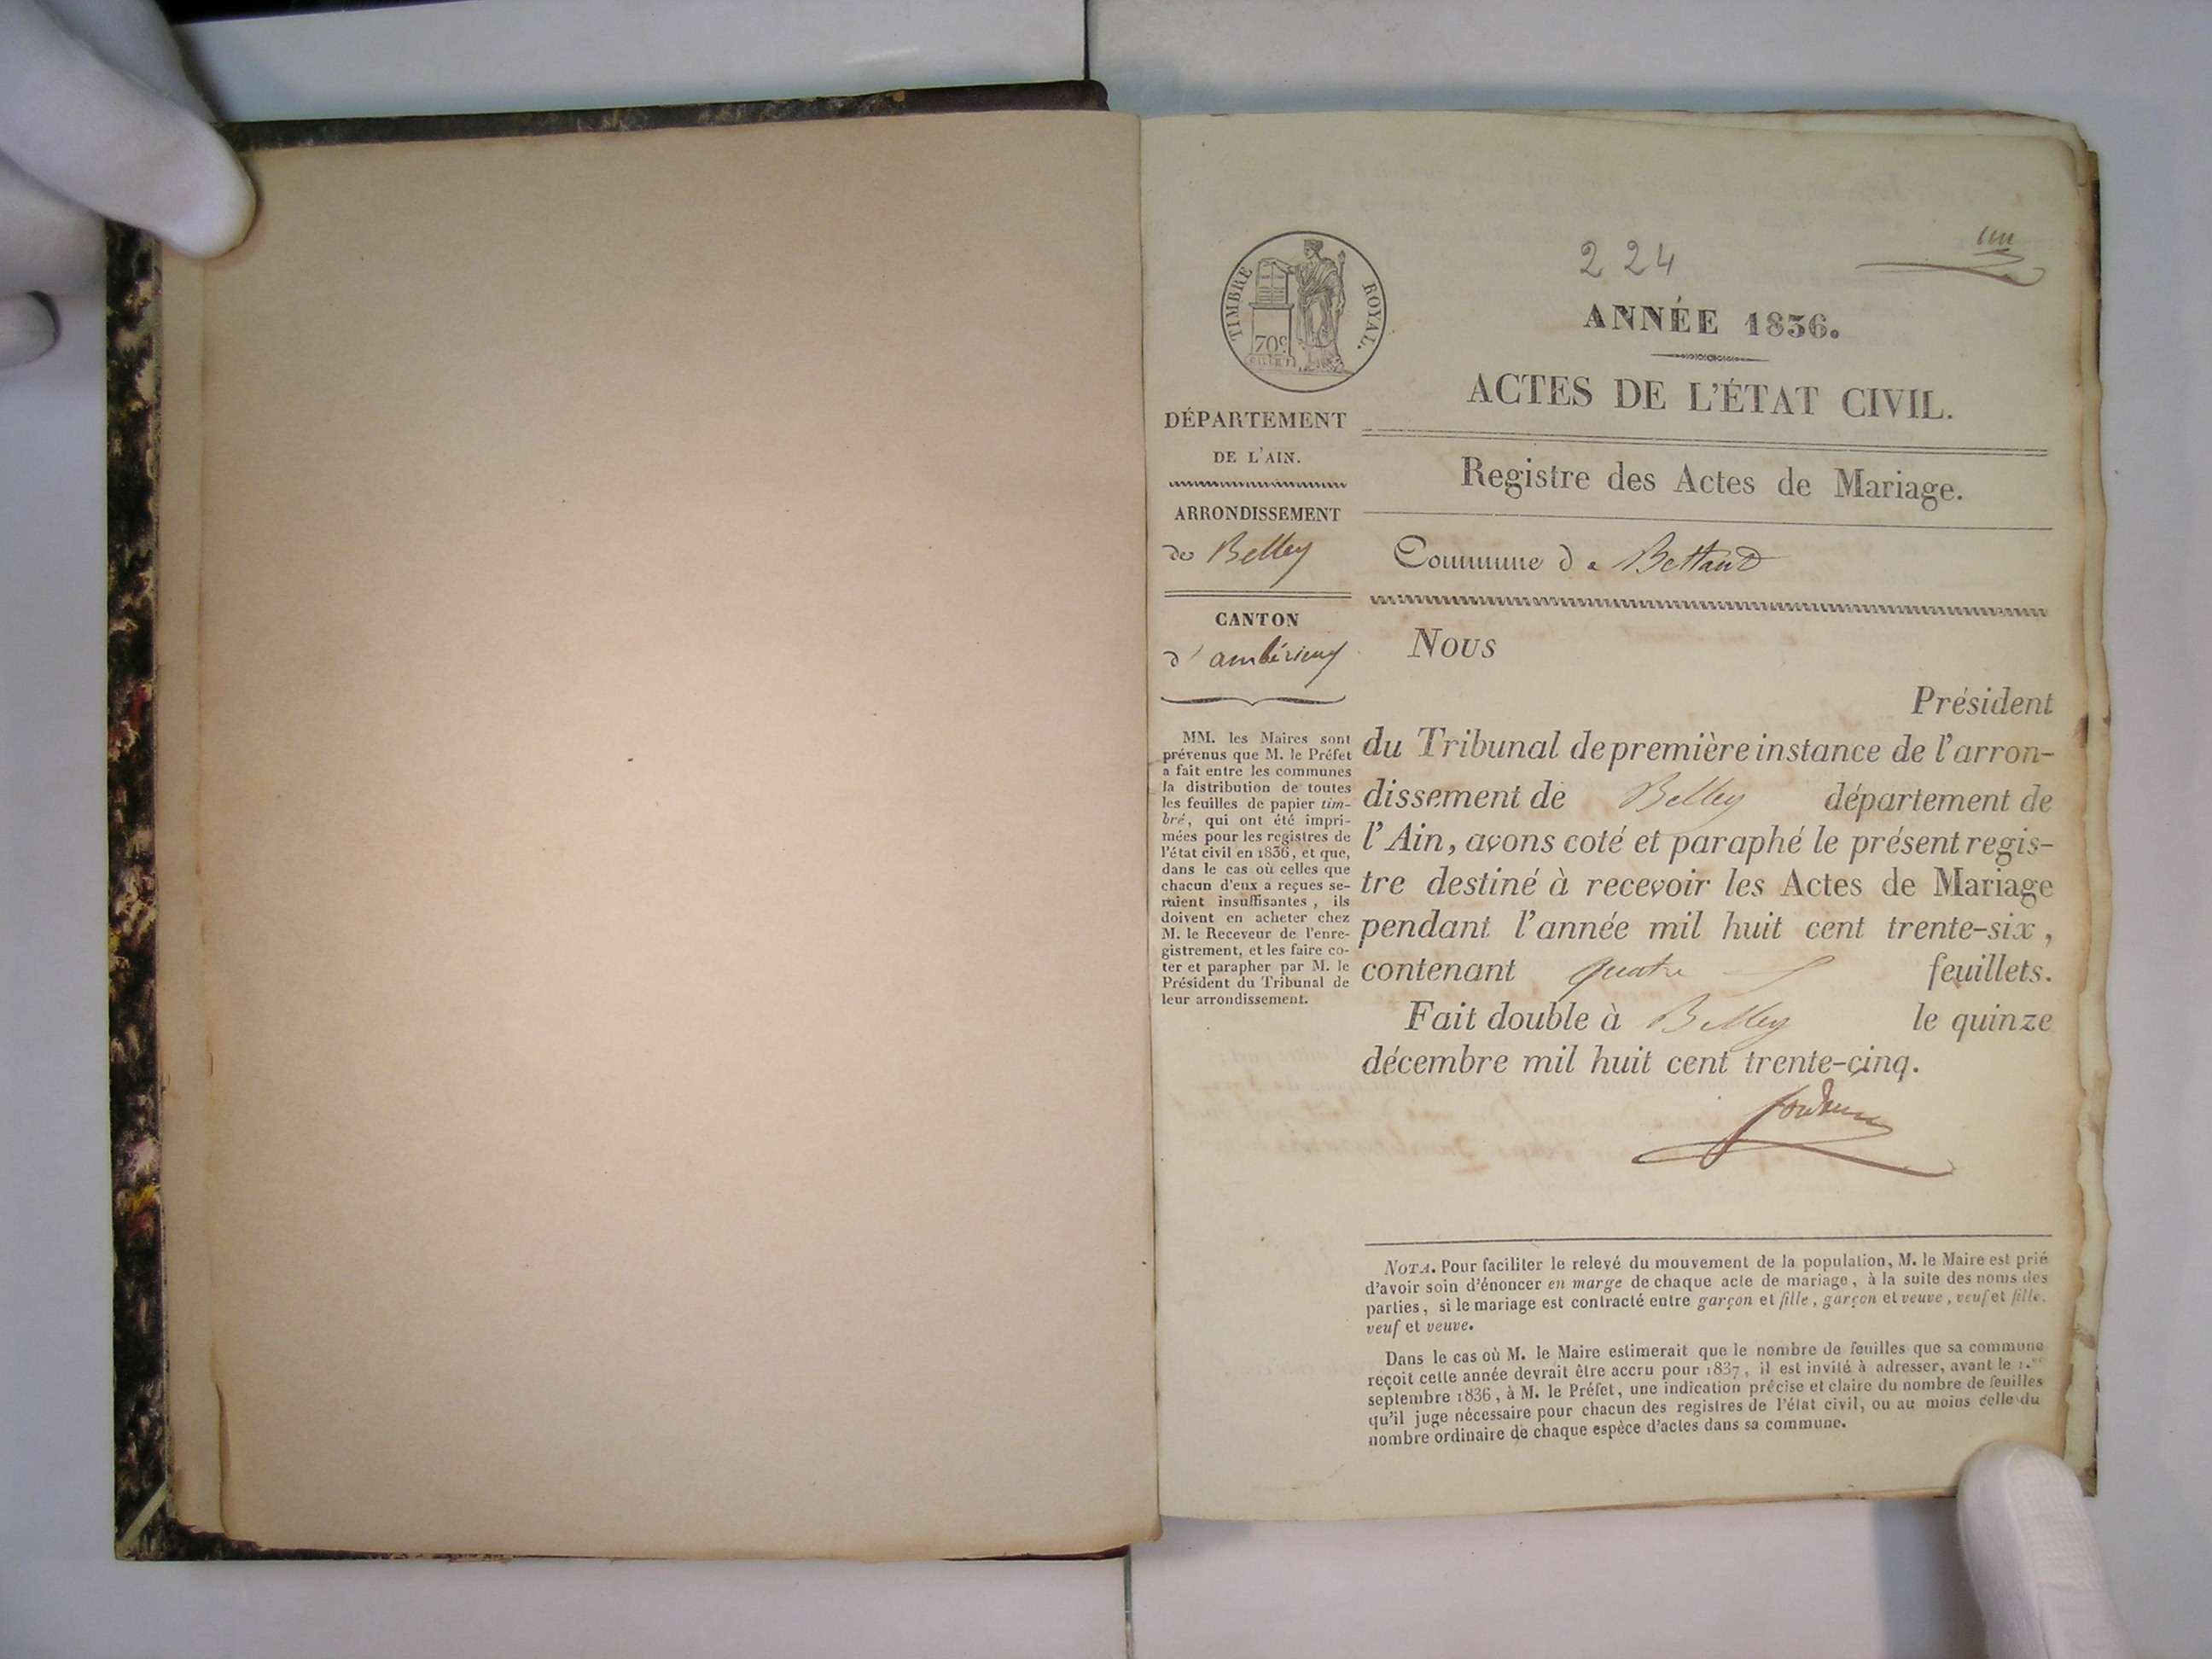 224
un
TIMBRE ROYAL.
70c
ANNÉE 1836.
ACTES DE L'ÉTAT CIVIL.
DÉPARTEMENT
DE L'AIN.
Registre des Actes de Mariage.
ARRONDISSEMENT
de Belley
Commune de Bettant
CANTON
d'ambérieuy
MM. les Maires sont
prévenus que M. le Préfet
a fait entre les communes
la distribution de toutes
les feuilles de papier tim-
bré, qui ont été impri-
mées pour les registres de
l'état civil en 1836, et que,
dans le cas où celles que
chacun d'eux a reçues se-
raient insuffisantes, ils
doivent en acheter chez
M. le Receveur de l'enre-
gistrement, et les faire co-
ter et parapher par M. le
Président du Tribunal de
leur arrondissement.
Nous
Président
du Tribunal de première instance de l'arron-
dissement de Belley département de
l'Ain, avons coté et paraphé le présent regis-
tre destiné à recevoir les Actes de Mariage
pendant l'année mil huit cent trente-six,
contenant quatre feuillets.
Fait double à Belley le quinze
décembre mil huit cent trente-cinq.
NOTA. Pour faciliter le relevé du mouvement de la population, M. le Maire est prié
d'avoir soin d'énoncer en marge de chaque acte de mariage, à la suite des noms des
parties, si le mariage est contracté entre garçon et fille, garçon et veuve, veuf et fille,
veuf et veuve.
Dans le cas où M. le Maire estimerait que le nombre de feuilles que sa commune
reçoit cette année devrait être accru pour 1837, il est invité à adresser, avant le 1.er
septembre 1836, à M. le Préfet, une indication précise et claire du nombre de feuilles
qu'il juge nécessaire pour chacun des registres de l'état civil, ou au moins celle du
nombre ordinaire de chaque espèce d'actes dans sa commune.